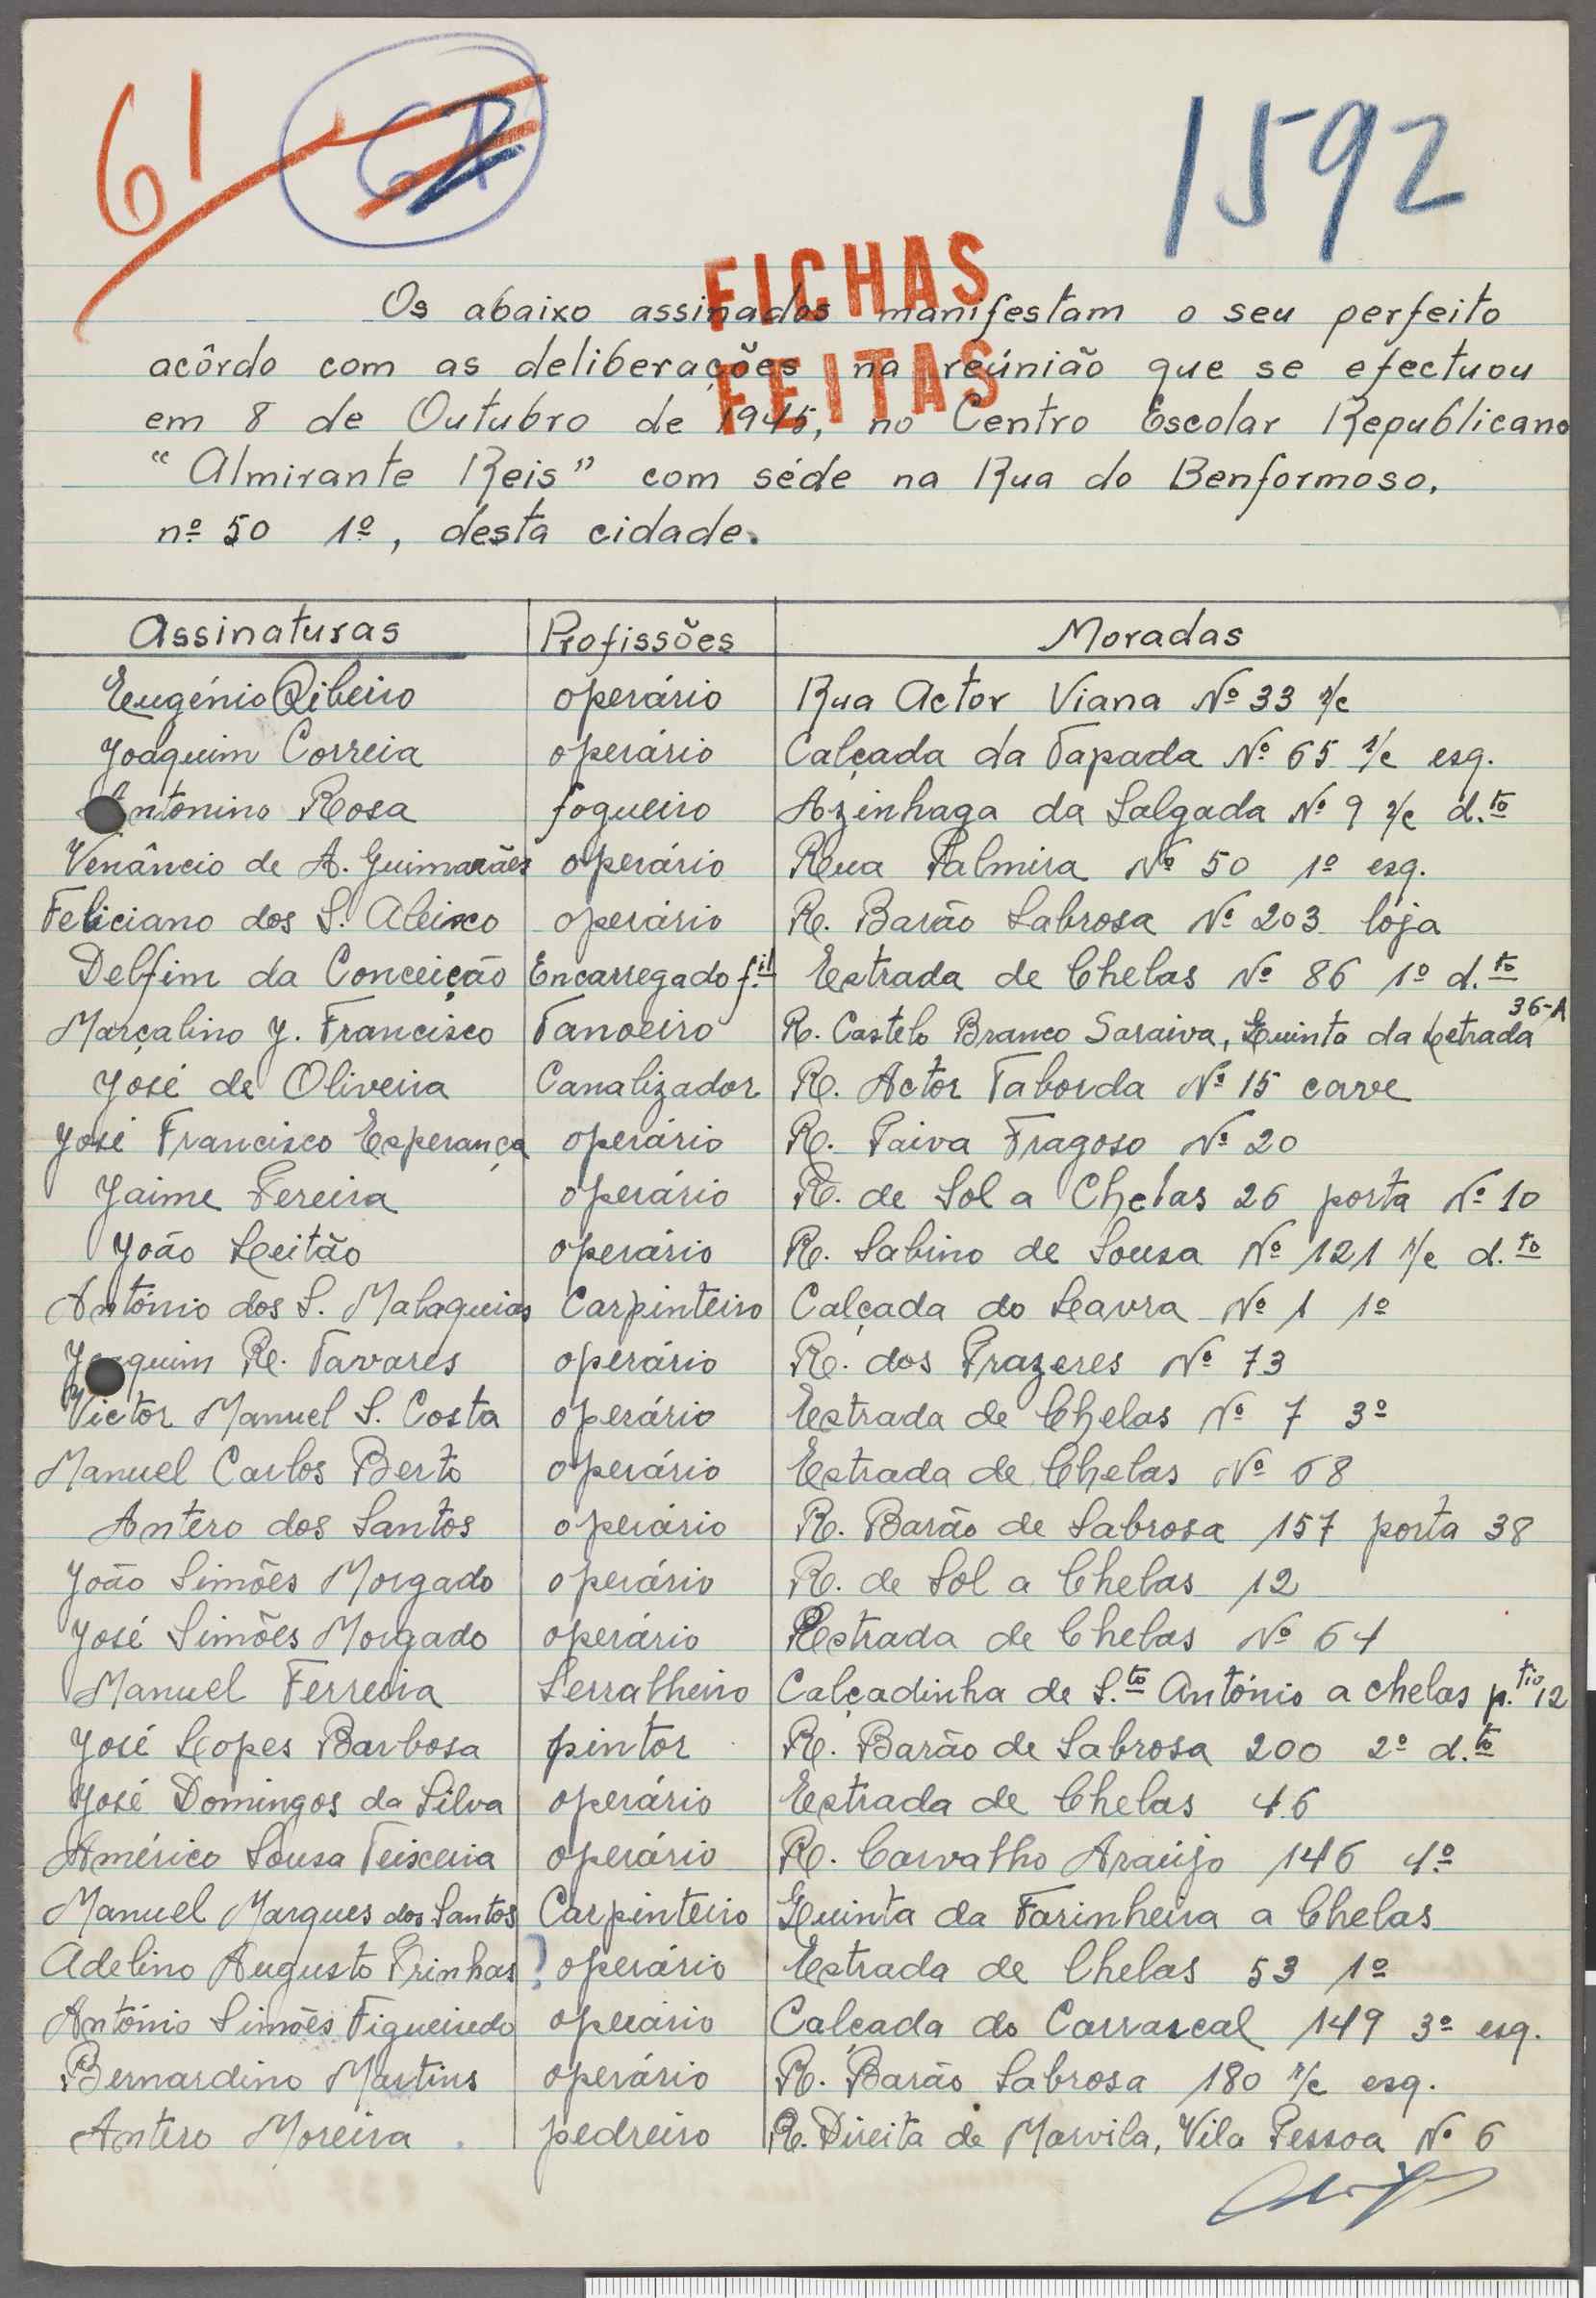 61
1592
FICHAS
FEITAS
Os abaixo assinados manifestam o seu perfeito
acôrdo com as deliberações na reúnião que se efectuou
em 8 de Outubro de 1945, no Centro Escolar Republicano
“Almirante Reis” com séde na Rua do Benformoso,
nº 50 1º, désta cidade.
Assinaturas Profissões Moradas
Eugénio Ribeiro operário Rua Actor Viana Nº 33 r/c
Joaquim Correia operário Calçada da Tapada Nº 65 r/c esq.
Antonino Rosa fogueiro Azinhaga da Salgada Nº 9 r/c d.to
Venâncio de A. Guimarães operário Rua Palmira Nº 50 1º esq.
Feliciano dos S. Aleixo operário R. Barão Sabrosa Nº 203 loja
Delfim da Conceição Encarregado f.il Estrada de Chelas Nº 86 1º d.to
Marçalino J. Francisco Tanoeiro R. Castelo Branco Saraiva, Quinta da Letrada 36-A
José de Oliveira Canalizador R. Actor Taborda Nº 15 cave
José Francisco Esperança operário R. Paiva Fragoso Nº 20
Jaime Fereira operário R. de Sol a Chelas 26 porta Nº 10
João Leitão operário R. Sabino de Sousa Nº 121 r/c d.to
António dos S. Malaquias Carpinteiro Calçada do Lavra Nº 1 1º
Joaquim R. Tavares operário R. dos Prazeres Nº 73
Victor Manuel S. Costa operário Estrada de Chelas Nº 7 3º
Manuel Carlos Berto operário Estrada de Chelas Nº 68
Antero dos Santos operário R. Barão de Sabrosa 157 porta 38
João Simões Morgado operário R. de Sol a Chelas 12
José Simões Morgado operário Estrada de Chelas Nº 64
Manuel Ferreira Serralheiro Calçadinha de S.to António a chelas p.tio 12
José Lopes Barbosa pintor R. Barão de Sabrosa 200 2º d.to
José Domingos da Silva operário Estrada de Chelas 46
Américo Sousa Teixeira operário R. Carvalho Araújo 146 4º
Manuel Marques dos Santos Carpinteiro Quinta da Farinheira a Chelas
Adelino Augusto Frinhas ? operário Estrada de Chelas 53 1º
António Simões Figueiredo operário Calçada do Carrascal 149 3º esq.
Bernardino Martins operário R. Barão Sabrosa 180 r/c esq.
Antero Moreira pedreiro R. Direita de Marvila, Vila Pessoa Nº 6